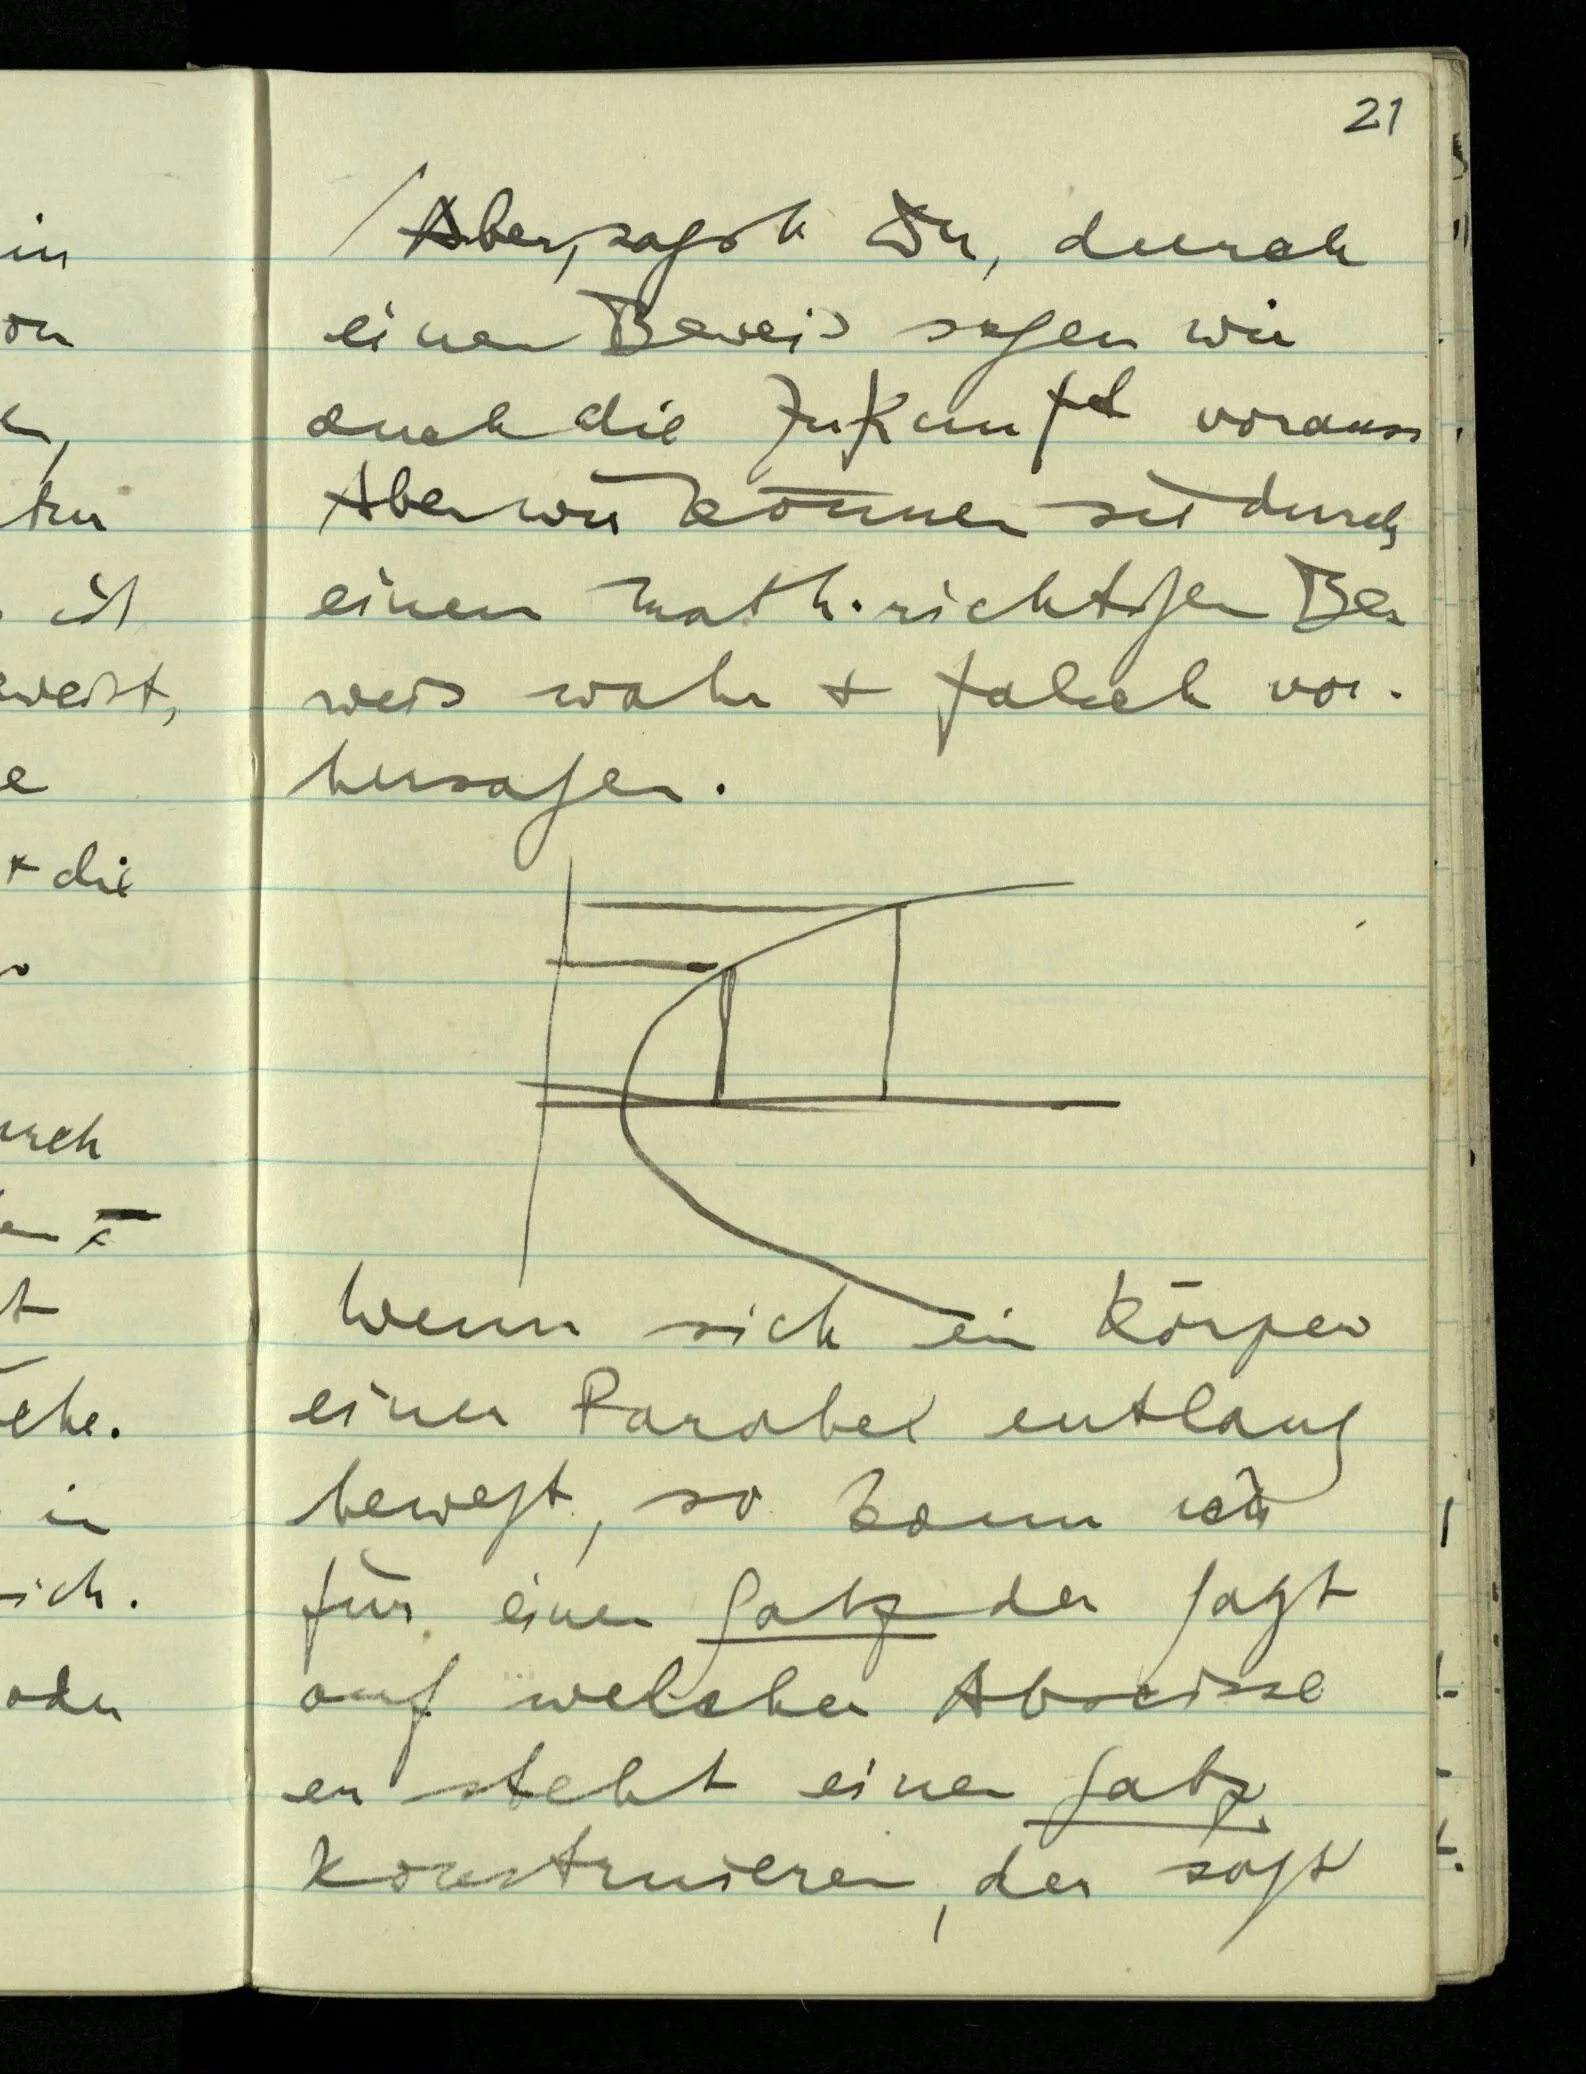 in
on
ist
eweist,
e
+ die
urch
t
ehe.
in
sich.
oder
21
/ Aber, sagst Du, durch
einen Beweis sagen wir
auch die Zukunft voraus
Aber wir können sie durch
einen math. richtigen Be
weis wahr + falsch vor-
hersagen.
Wenn sich ein Körper
einer Parabel entlang
bewegt, so kann ich
für einen Satz der sagt
auf welcher Abscisse
er steht einen Satz
konstruieren, der sagt